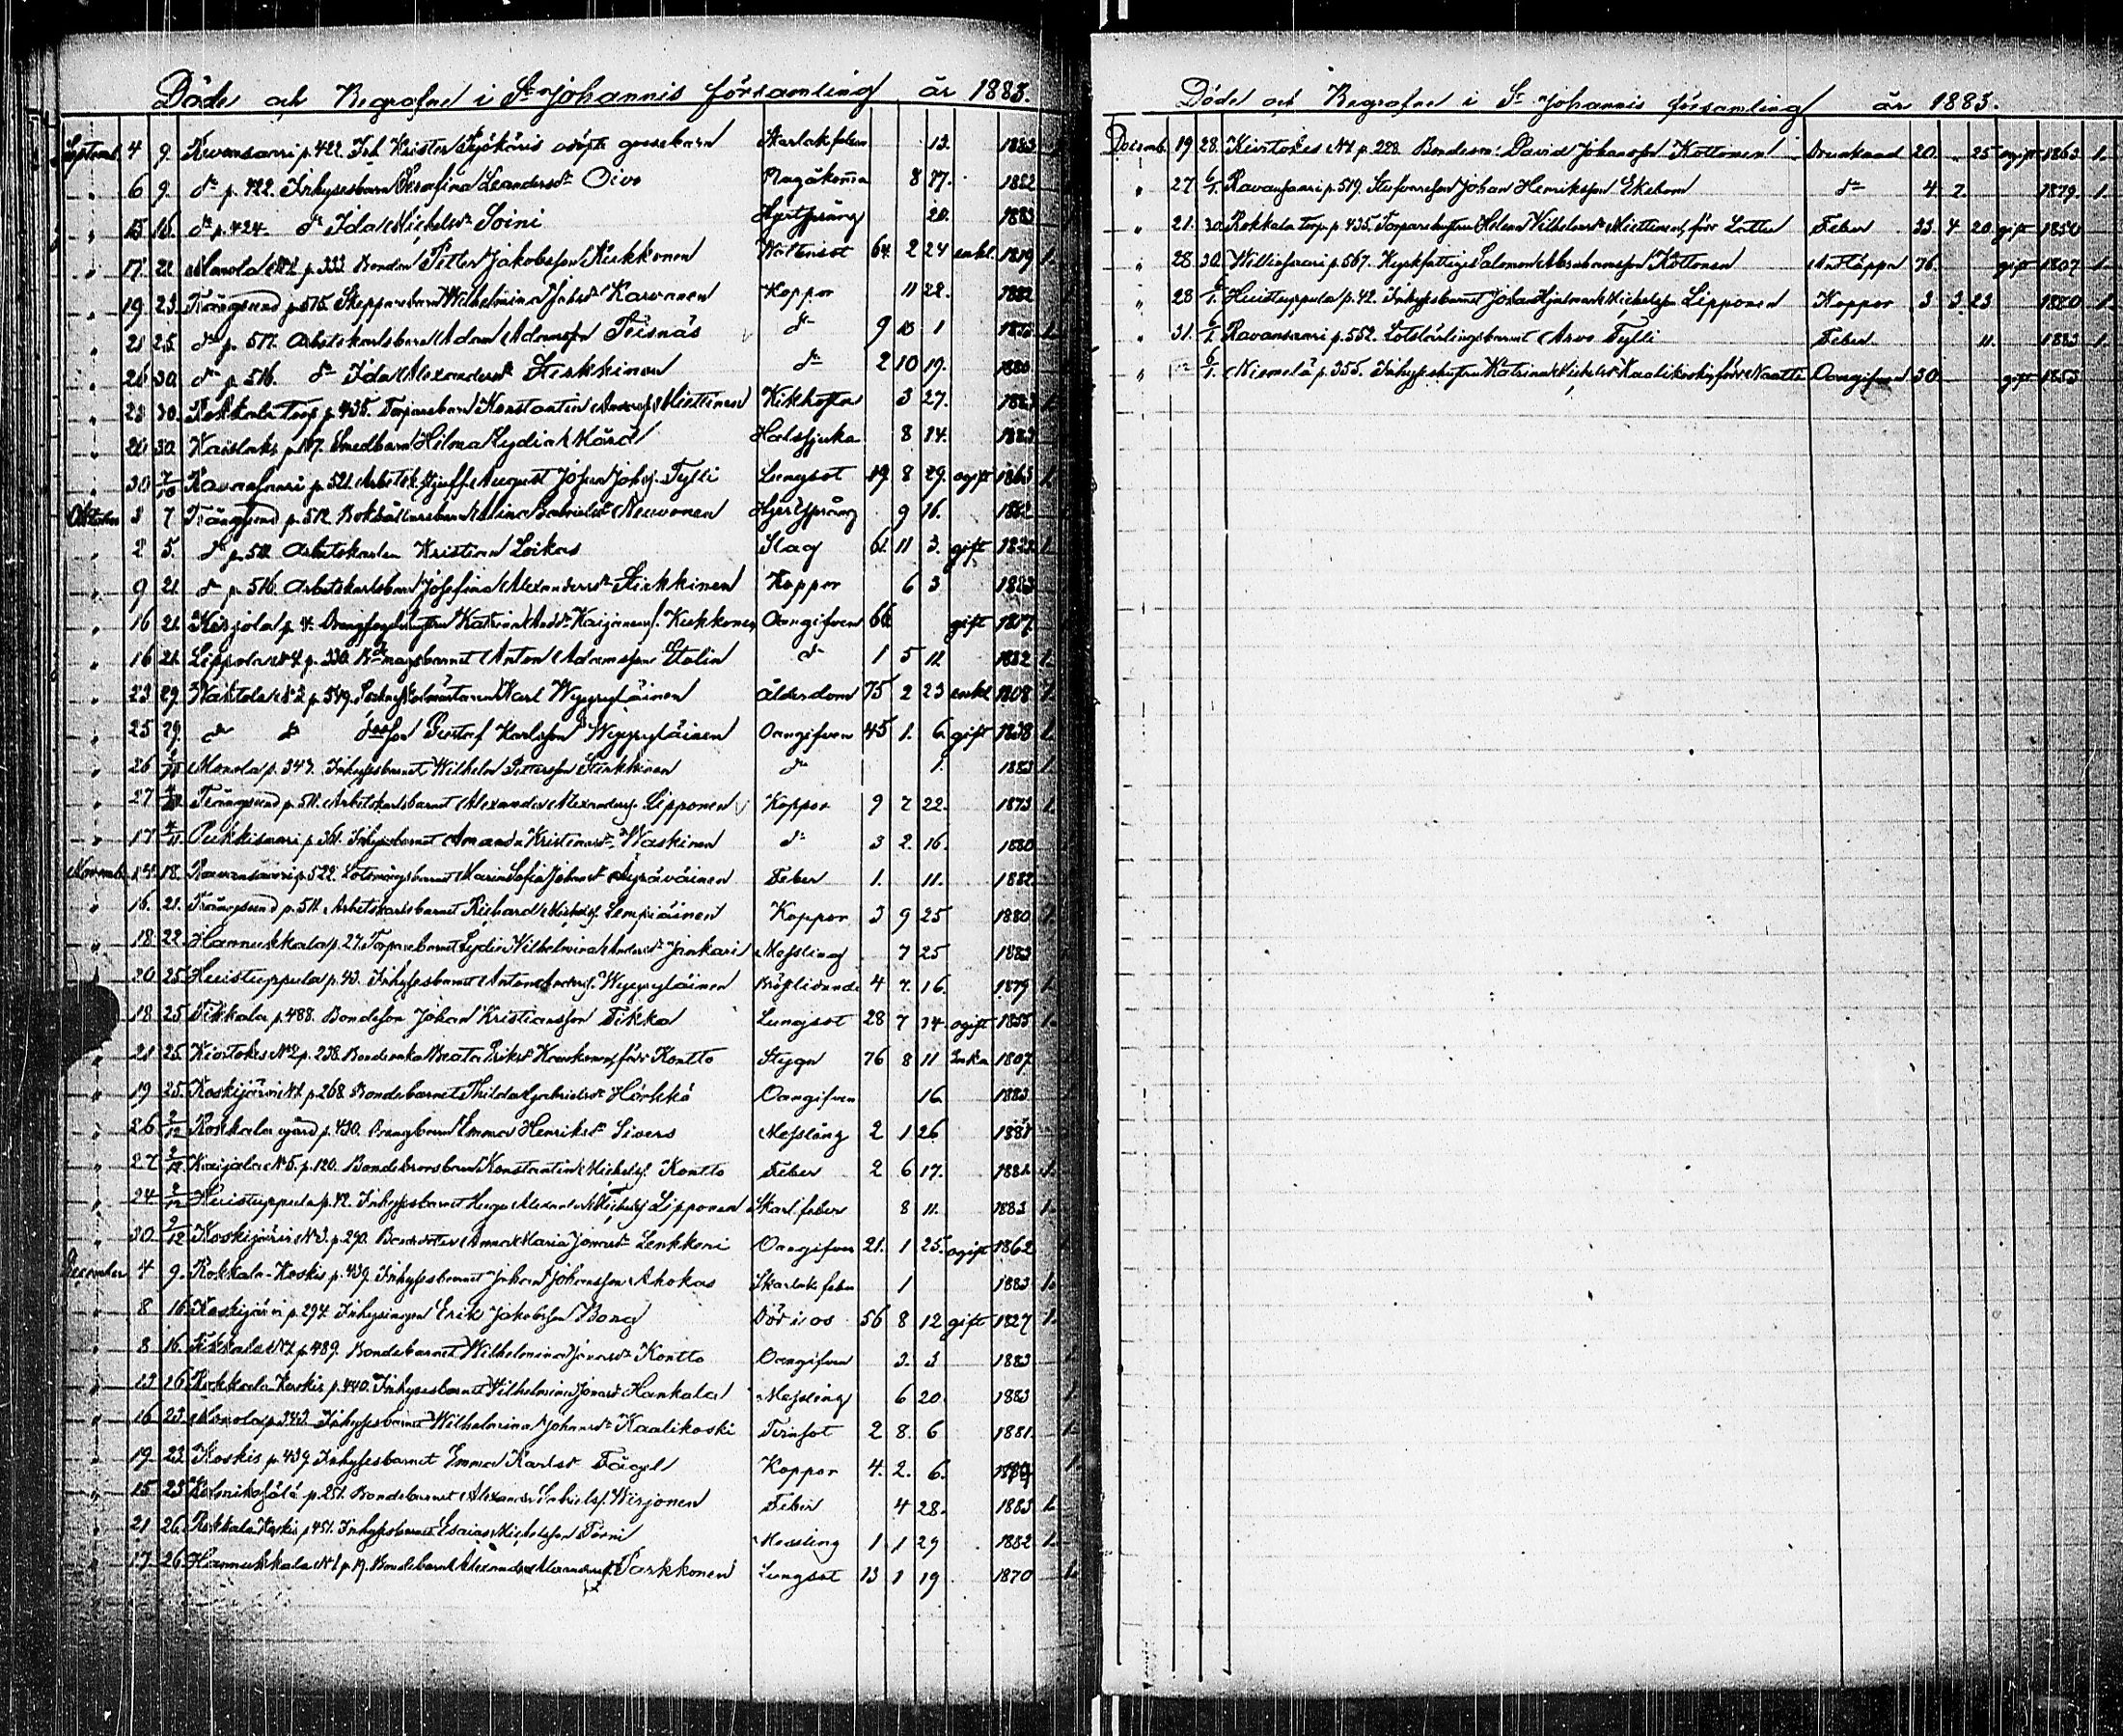 Döde och Begrafne i St Johannis församling år 1883.
Septemb. 4 9. Revonsaari p. 422. Inh. Krister odöpte gossebarn Skarlakfeber 13. 1883
" 6 9. do p. 422. Inhysesbarn Serafina Leandersdr Oivo Magåkomma 8 1882
" 15 16. do p. 424. do Ida Michelsdr Soini Hjertsprång 20. 1883
" 17. 21 Monola No 1 p. 333. Bonden Petter Jakobsson Kiekkonen Wattensot 64. 2 24 enkl. 1819 1.
" 19 23. Trångsund p. 515. Skepparebarn Wilhelmina Johsdr Karvanen Koppor 11 28. 1882
" 21 25. do p. 517. Arbetskarlsbarn Adam Adamsson Peisnäs do 9 10 1
" 26 30. do p. 516. do Ida Alexandersdr Kiekkinen do 2 10 19. 1880
" 28 30. Rokkala torp p. 435. Torparebarn Konstantin Andersson Miettinen Kikhosta 3 27. 1883 1.
" 20 30. Kaislaks p. 187. Smedbarn Hilma Lydia Mård Halssjuka 8 14. 1883
" 30 7/10 Ravansaari p. 521. August Johan Johss. Tylli Lungsot 19 8 29. ogift 1863 1.
Oktober 3 7 Trångsund p. 512. Bokhållarebarn Alina Gabrielsdr Neuvonen Hjertsprång 9 16. 1882
" 2 5. do p. 511. Arbetskarlen Kristian Loikas Slag 61 11 3. gift 1822 1.
" 9 21 do p. 516. Arbetskarlsbarn Josefina Alexandersdr Kiekkinen Koppor 6 3 1883
" 16 21. Kirjola p. 4. Katrina Andsdr Kaijanen f. Kiekkonen Oangifven 66 gift 1817.
" 16 21. Lippola No 4 p. 330. Anton Adamsson Stolin do 1 5 12 1882 1.
" 23 29. Waktola No 2 p. 549. Karl Wepsäläinen ålderdom 75 2 23 enkl 1808 1.
" 25 29. do do son Gustaf Karlsson Wepsäläinen Oangifven 45 1. 6. gift 1838 1.
" 26 Monola p. 343. Inhysesbarnet Wilhelm Pettersson Kiekkinen do 1. 1883 1.
" 27 Trångsund p. 511. Arbetskarlsbarnet Alexander Alexanders. Lipponen Koppor 9 7 22. 1873 1.
" 17 Pukkisaari p. 361. Inhysesbarnet Amanda Kristiansdr Waskinen do 3 2. 16. 1880
Novemb. 14 18. Ravansaari p. 522. Lotsmansbarnet Maria Sofia Johansdr Äyräväinen Feber 1. 11. 1882
" 16. 21. Trångsund p. 511. Arbetskarlsbarnet Richard Michelss. Lempiäinen Koppor 3 9 25 1880 1.
" 18. 22. Hannukkala p. 27. Torparebarnet Lydia Wilhelmina Andersdr Jankari Messling 7 25 1883
" 20 25 Huistuppula p. 43. Inhysesbarnet Anton Anderss. Wepsäläinen Bröstlidande 4 7. 16. 1879 1.
" 18 25 Tikkala p. 488. Bondeson Johan Kristiansson Tikka Lungsot 28 7 14. ogift 1855 1.
" 21 25. Kiurtokes No 2 p. 238. Bondeenka Beata Eriksdr född Kontto Stygn 76 8 11 Enka 1807
" 19 25. Koskijärvi No 1 p. 268. Bondebarnet Thilda Gabrielsdr Hörkkö Oangifven 16. 1883
" 26 2/12 Rokkala gård p. 430. Drengbarn Emma Henriksdr Sivers Messling 2 1 26 1881
" 27 2/12 Kaijala No 5. p. 120. Konstantin Michelss. Kontto Feber 2 6 17. 1881 1.
" 24 2/12 Huistuppula p. 42. Inhysesbarnet Hugo Alexander Michelss. Lipponen Skarl. feber 8 11. 1883 1.
" 30 2/12 Koskijärvi No 3. p. 290. Bondedotter Anna Maria Jonasdr Lenkkeri Oangifven 21. 1 25. ogift 1862
December 4 9. Rokkala-Koskis p. 439. Inhysesbarnet Johan Johansson Ahokas Skarlak feber 1 1883 1.
" 8 16 Koskijärvi p. 294. Inhysingen Erik Jakobsson Borg 56 8 12 gift 1827 1.
" 8 16. Tikkala No 1 p. 489. Bondebarnet Wilhelmina Jonasdr Kontto Oangifven 3. 3 1883
" 13 16 Rokkala Koskis p. 440. Inhysesbarnet Wilhelmina Jonasdr Hankala Messling 6 20. 1883
" 16 23. Monola p. 343. Inhysesbarnet Wilhelmina Johansdr Kaalikoski Tvinsot 2 8. 6 1881. 1.
" 19. 23. Koskis p. 439 Inhysesbarnet Emma Karlsdr Fågel Koppor 4. 2. 6. 1879 1.
" 15 23 p. 251. Bondebarnet Alexander Gabrielss. Wirjonen Feber 4 28. 1883 1.
" 21 26. Rokkala Koskis p. 451. Inhysesbarnet Esaias Michelsson Törni Messling 1 1 29 1882 1.
" 17. 26 Hannukkala No 1 p. 19. Bondebarnet Alexander Alexanderss. Parkkonen Lungsot 13 1 19 1870 1.
Döde och Begrafne i St Johannis församling år 1883.
Decemb. 19 28. Kiurtokes No 1 p. 228. Bondeson David Johansson Kottonen Drunknad 20. 25 ogift 1863. 1.
" 27 6/1. Ravansaari p. 519. Johan Henriksson Ekebom do 4 2. 1879. 1.
" 21. 30. Rokkala torp p. 435. Torparehustrun Helena Wilhelmsdr Miettinen, för Lattu Feber 33. 4. 20. gift 1850
" 28. 30. Williasaari p. 567. Kyrkfattige Salomon Abrahamsson Kottonen Andtäppa 76. gift 1807 1.
" 28 6/1. Huistuppula p. 42. Inhysesbarnet Johan Hjalmar Michelsson Lipponen Koppor 3 3. 23 1880 1.
" 31. 6/1. Ravansaari p. 552. Lotslärlingsbarnet Arvo Tylli Feber 11. 1883 1.
" 6/1. Niemelä p. 355. Inhyseshustrun Katrina Michelsdr Kaalikoski, född Naatti Oangifven 30. gift 1853